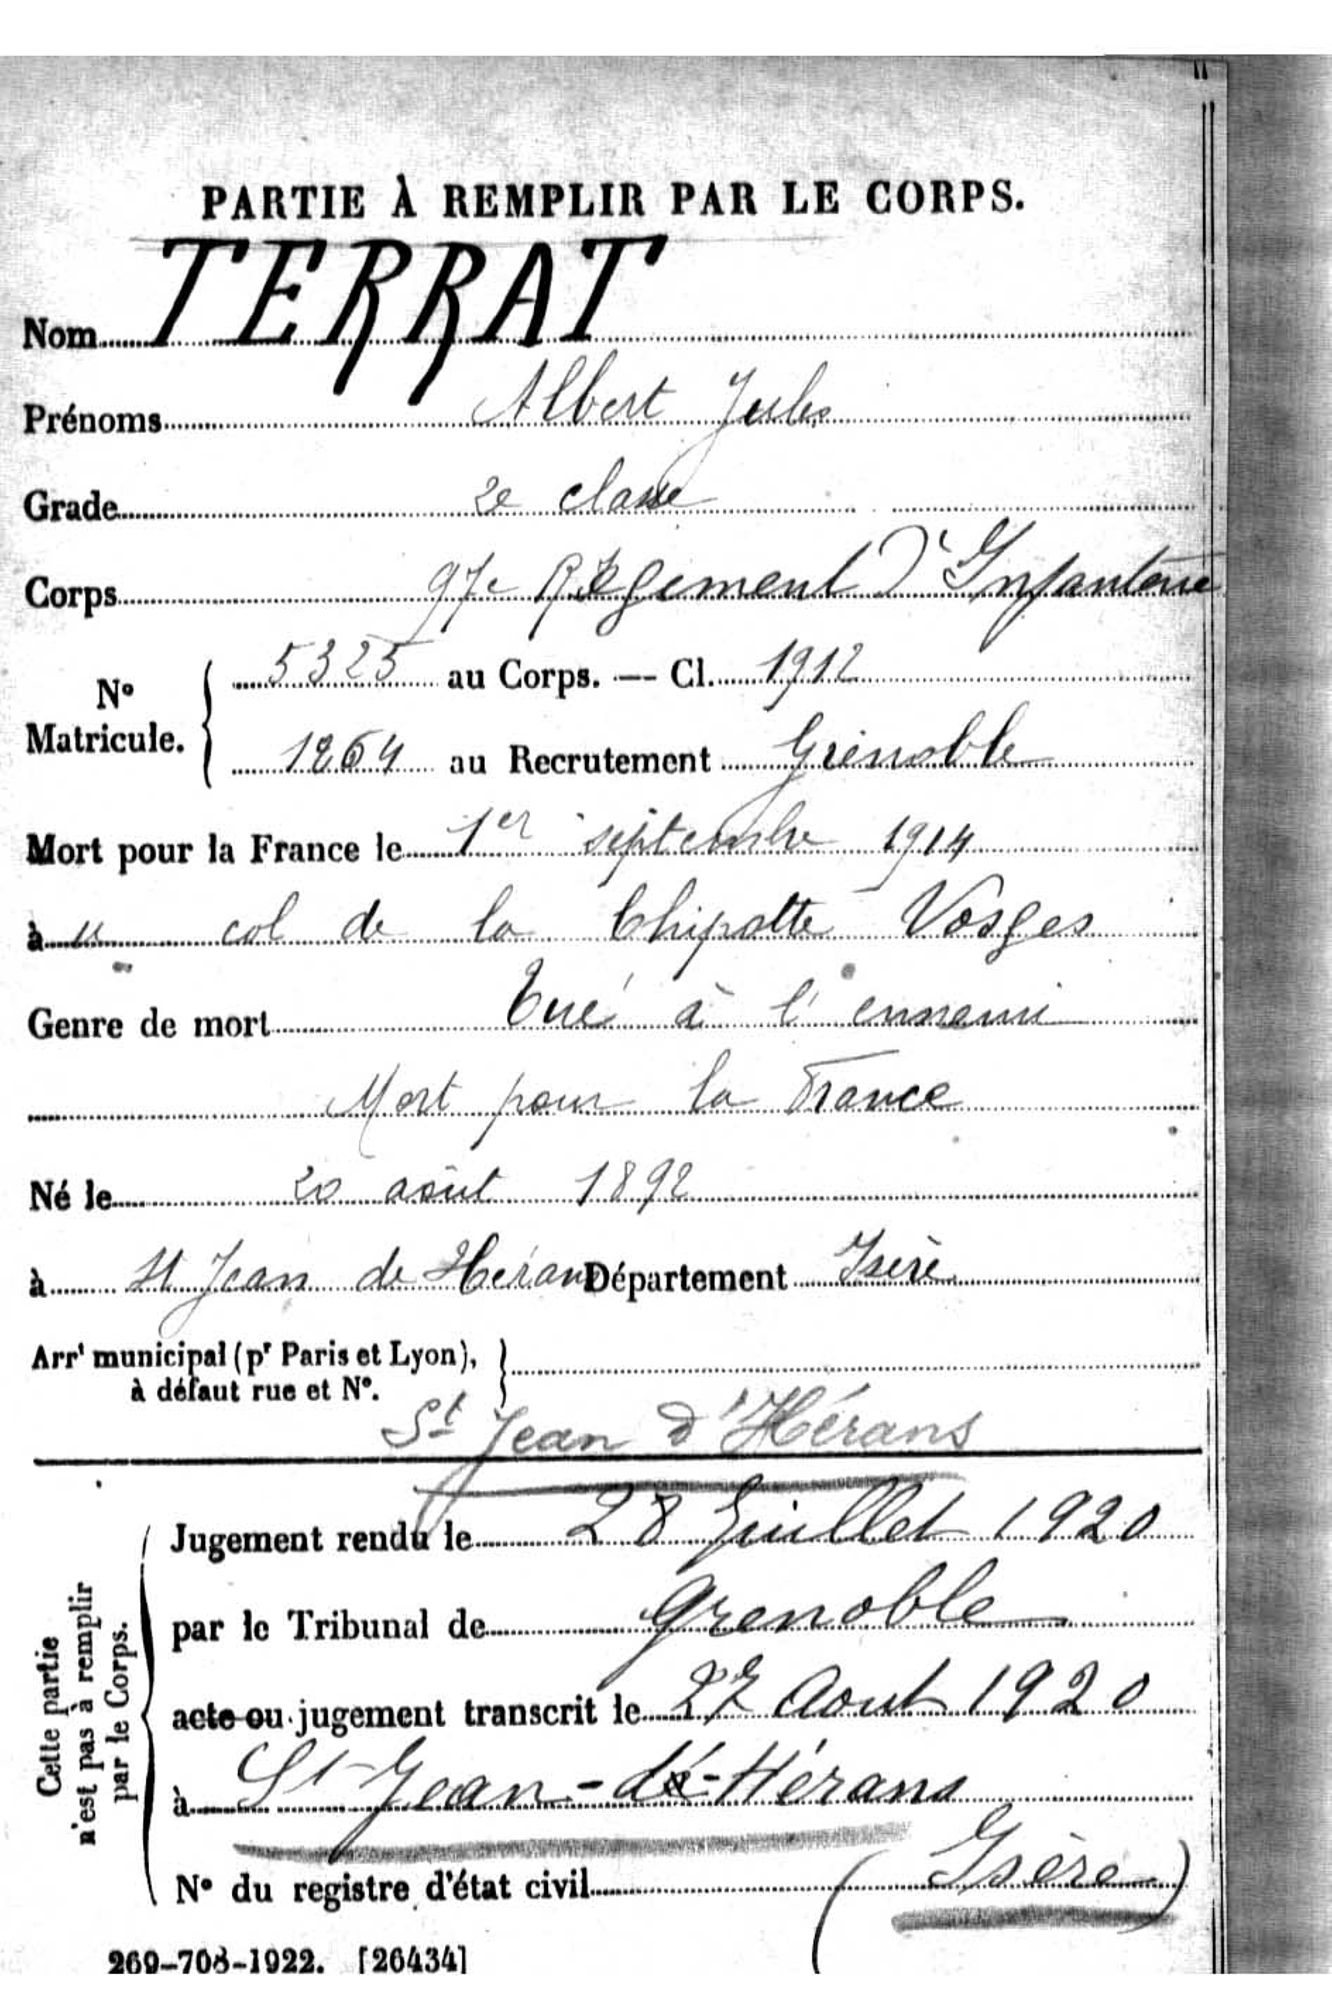 PARTIE À REMPLIR PAR LE CORPS.
Nom TERRAT
Prénoms Albert Jules
Grade 2e classe
Corps 97e Régiment d'Infanterie
N° Matricule. 5325 au Corps. — Cl. 1912
1264 au Recrutement Grenoble
Mort pour la France le 1er septembre 1914
à u col de la Chipotte Vosges
Genre de mort Tué à l'ennemi
Mort pour la France
Né le 20 août 1892
à St Jean de Hérans Département Isère
Arrt municipal (pr Paris et Lyon),
à défaut rue et N°.
St Jean d'Hérans
Cette partie
n'est pas à remplir
par le Corps.
Jugement rendu le 28 Juillet 1920
par le Tribunal de Grenoble
acte ou jugement transcrit le 27 Aout 1920
à St-Jean-d'Hérans
N° du registre d'état civil (Isère)
269-708-1922. [26434]